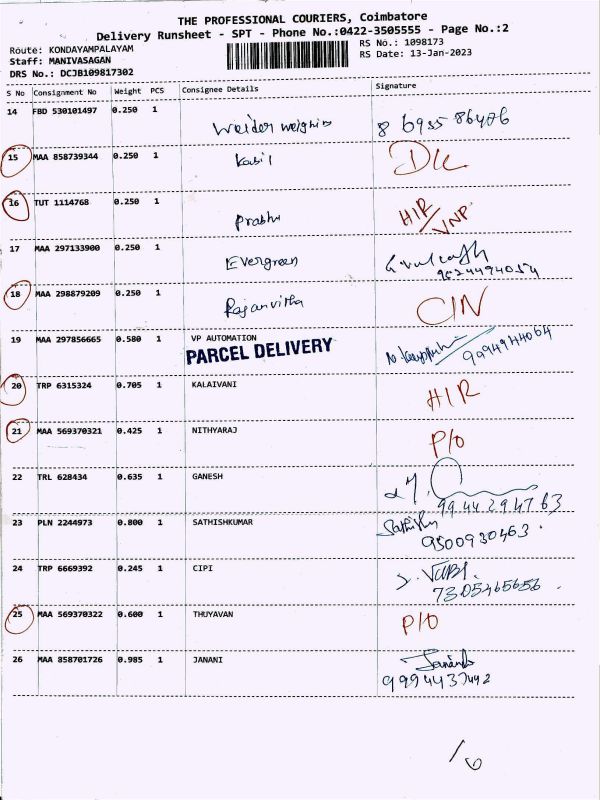 THE PROFESSIONAL COURIERS, Coimbatore
Delivery Runsheet - SPT - Phone No.:0422-3505555 - Page No.:2
Route: KONDAYAMPALAYAM
Staff: MANIVASAGAN
DRS No.: DCJB109817302
RS No.: 1098173
RS Date: 13-Jan-2023
S No Consignment No Weight PCS Consignee Details Signature
14 FBD 530101497 0.250 1 Weider weighis
15 MAA 858739344 0.250 1 Kabil
16 TUT 1114768 0.250 1 Prabhu HIR/VNP
17 MAA 297133900 0.250 1 Evergreen
18 MAA 298879209 0.250 1 CIN
19 MAA 297856665 0.580 1 VP AUTOMATION 9994944064
PARCEL DELIVERY
20 TRP 6315324 0.705 1 KALAIVANI HIR
21 MAA 569370321 0.425 1 NITHYARAJ P/O
22 TRL 628434 0.635 1 GANESH
99 44 29 47 63
23 PLN 2244973 0.800 1 SATHISHKUMAR Sathish
9500930463
24 TRP 6669392 0.245 1 CIPI
7305465656
25 MAA 569370322 0.600 1 THUYAVAN P/O
26 MAA 858701726 0.985 1 JANANI Janani
9994437492